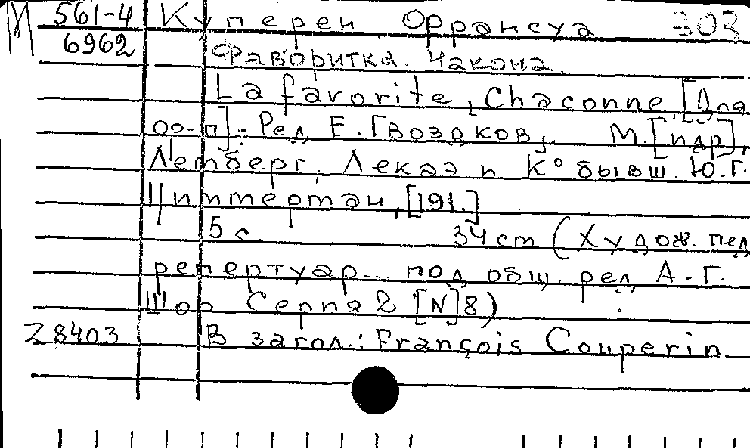 М 561-4 Куперен Франсуа 303
6962 Фаворитка. Чакона
La favorite, Chaconne [Для
фо-п]. Ред Е. Гвоздков. М. [и др],
Летберг, Леказ и К° бывш. Ю.Г.
Циммерман, [191.]
5 с 34 cm (Худож. пед
репертуар под общ. ред А.Г.
Шор Серия 2 [N] 8)
Z 8403 В загол.: François Couperin